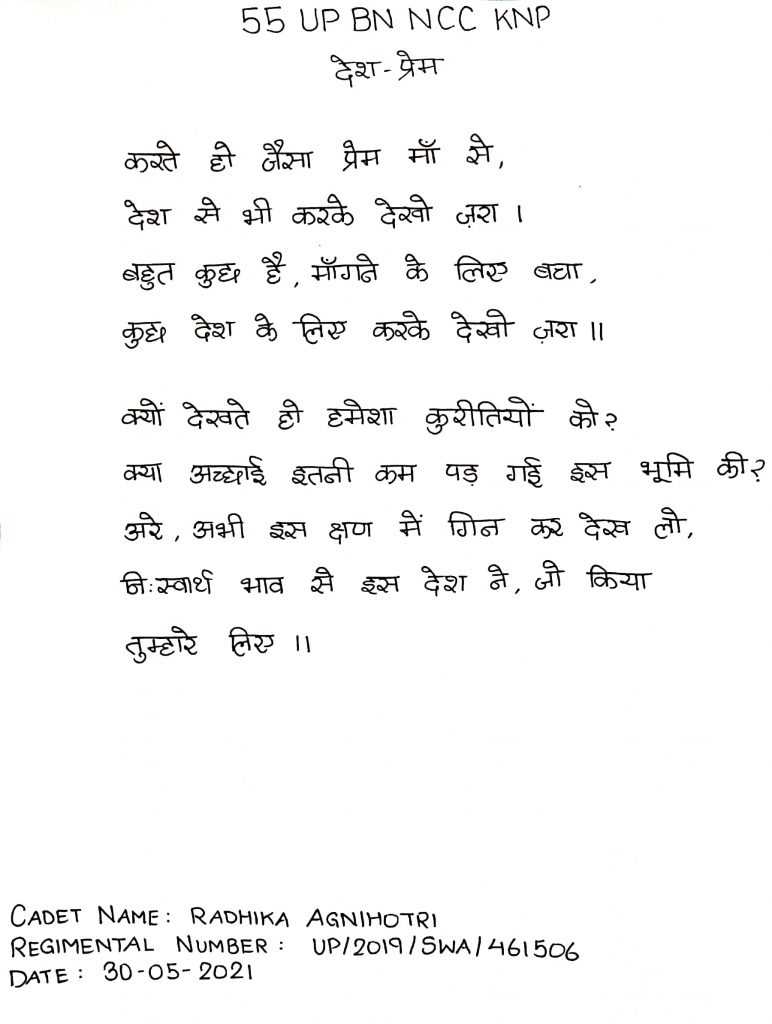 55 UP BN NCC KNP
देश-प्रेम
करते हो जैसा प्रेम माँ से,
देश से भी करके देखो ज़रा ।
बहुत कुछ है, माँगने के लिए बचा,
कुछ देश के लिए करके देखो ज़रा ॥
क्यों देखते हो हमेशा कुरीतियों को?
क्या अच्छाई इतनी कम पड़ गई इस भूमि की?
अरे, अभी इस क्षण में गिन कर देख लो,
निःस्वार्थ भाव से इस देश ने, जो किया
तुम्हारे लिए ॥
CADET NAME: RADHIKA AGNIHOTRI
REGIMENTAL NUMBER: UP/2019/SWA/461506
DATE: 30-05-2021